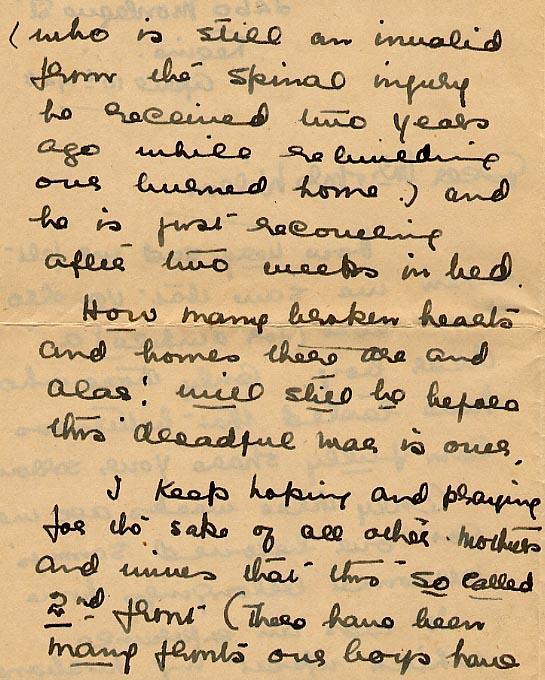 (who is still an invalid
from the spinal injury
he received two years
ago while rebuilding
our burned home.) and
he is just recovering
after two weeks in bed.
How many broken hearts
and homes there are and
alas! will still be before
this dreadful war is over.
I keep hoping and praying
for the sake of all other mothers
and wives that this so called
2nd front (There have been
many fronts our boys have